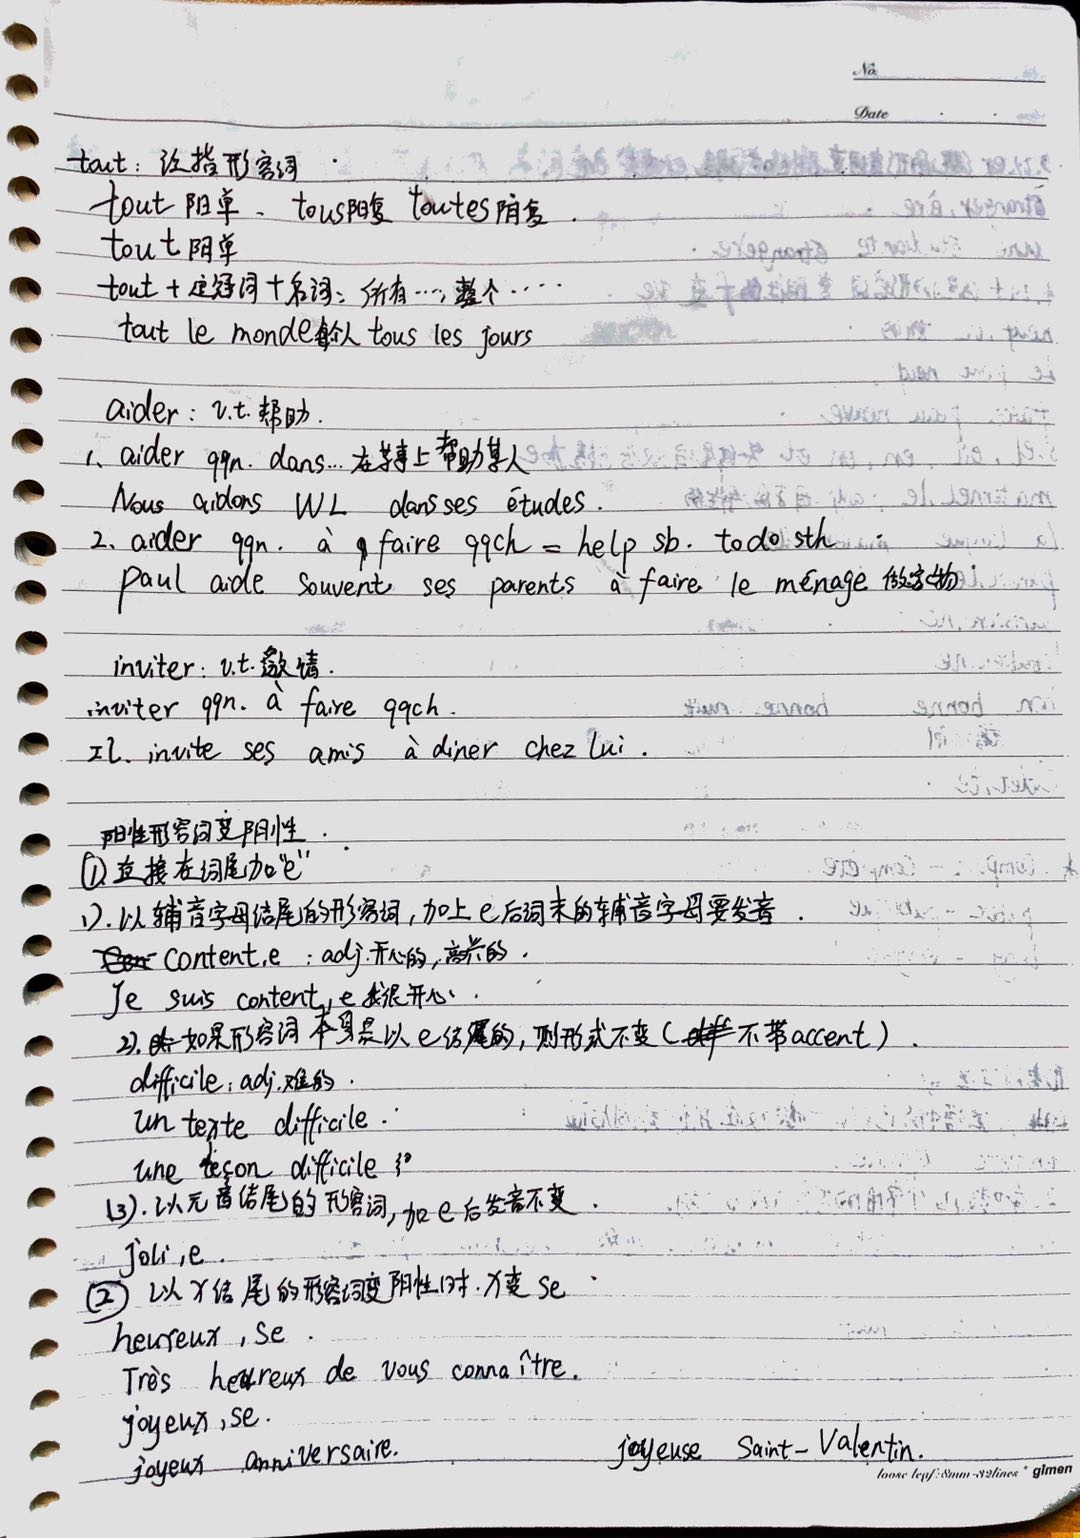 No.
Date
tout: 泛指形容词
tout 阳单、tous阳复 toutes阴复.
tout 阴单
tout + 定冠词 + 名词: 所有…; 整个……
tout le monde每个人 tous les jours
aider: v.t. 帮助.
1、aider qqn. dans... 在某事上帮助某人
Nous aidons WL dans ses études.
2、aider qqn. à faire qqch = help sb. to do sth
Paul aide souvent ses parents à faire le ménage 做家物
inviter: v.t. 邀请.
inviter qqn. à faire qqch.
Il invite ses amis à diner chez lui.
阳性形容词变阴性.
①直接在词尾加"e"
1). 以辅音字母结尾的形容词, 加上e后词末的辅音字母要发音.
content,e : adj.开心的,高兴的.
Je suis content,e 我很开心.
2). 如果形容词本身是以e结尾的, 则形式不变(不带accent).
difficile: adj.难的.
un texte difficile.
une leçon difficile
(3). 以元音结尾的形容词,加e后发音不变.
joli,e.
② 以x结尾的形容词变阴性时.x变se
heureux, se.
Très heureux de vous connaître.
joyeux, se.
joyeux anniversaire. joyeuse Saint-Valentin.
loose leaf: 8mm-32lines * gimen